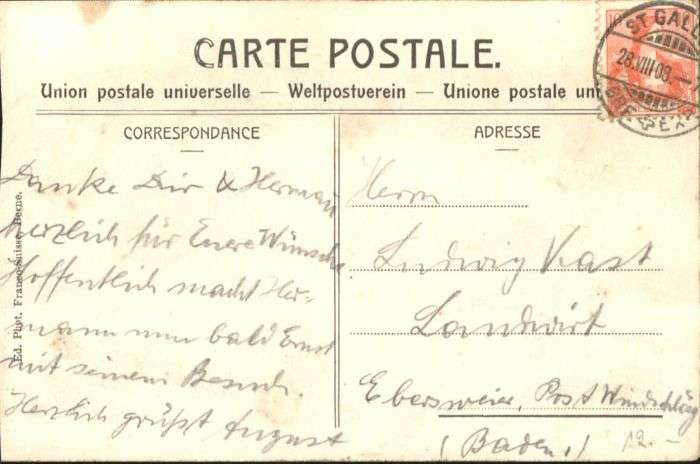 CARTE POSTALE.
Union postale universelle — Weltpostverein — Unione postale uni
CORRESPONDANCE
ADRESSE
ST GALL
28.VIII.09.
Danke Dir & Herman
herzlich für Euere Wünsche
Hoffentlich macht Her-
mann nun bald Ernst
mit seinem Besuch.
Herzlich grüßt August
Herrn
Ludwig Vast
Landwirt
Ebersweier, Post Windschläg
(Baden.)
12.-
Ed. Phot. Franco-Suisse, Berne.